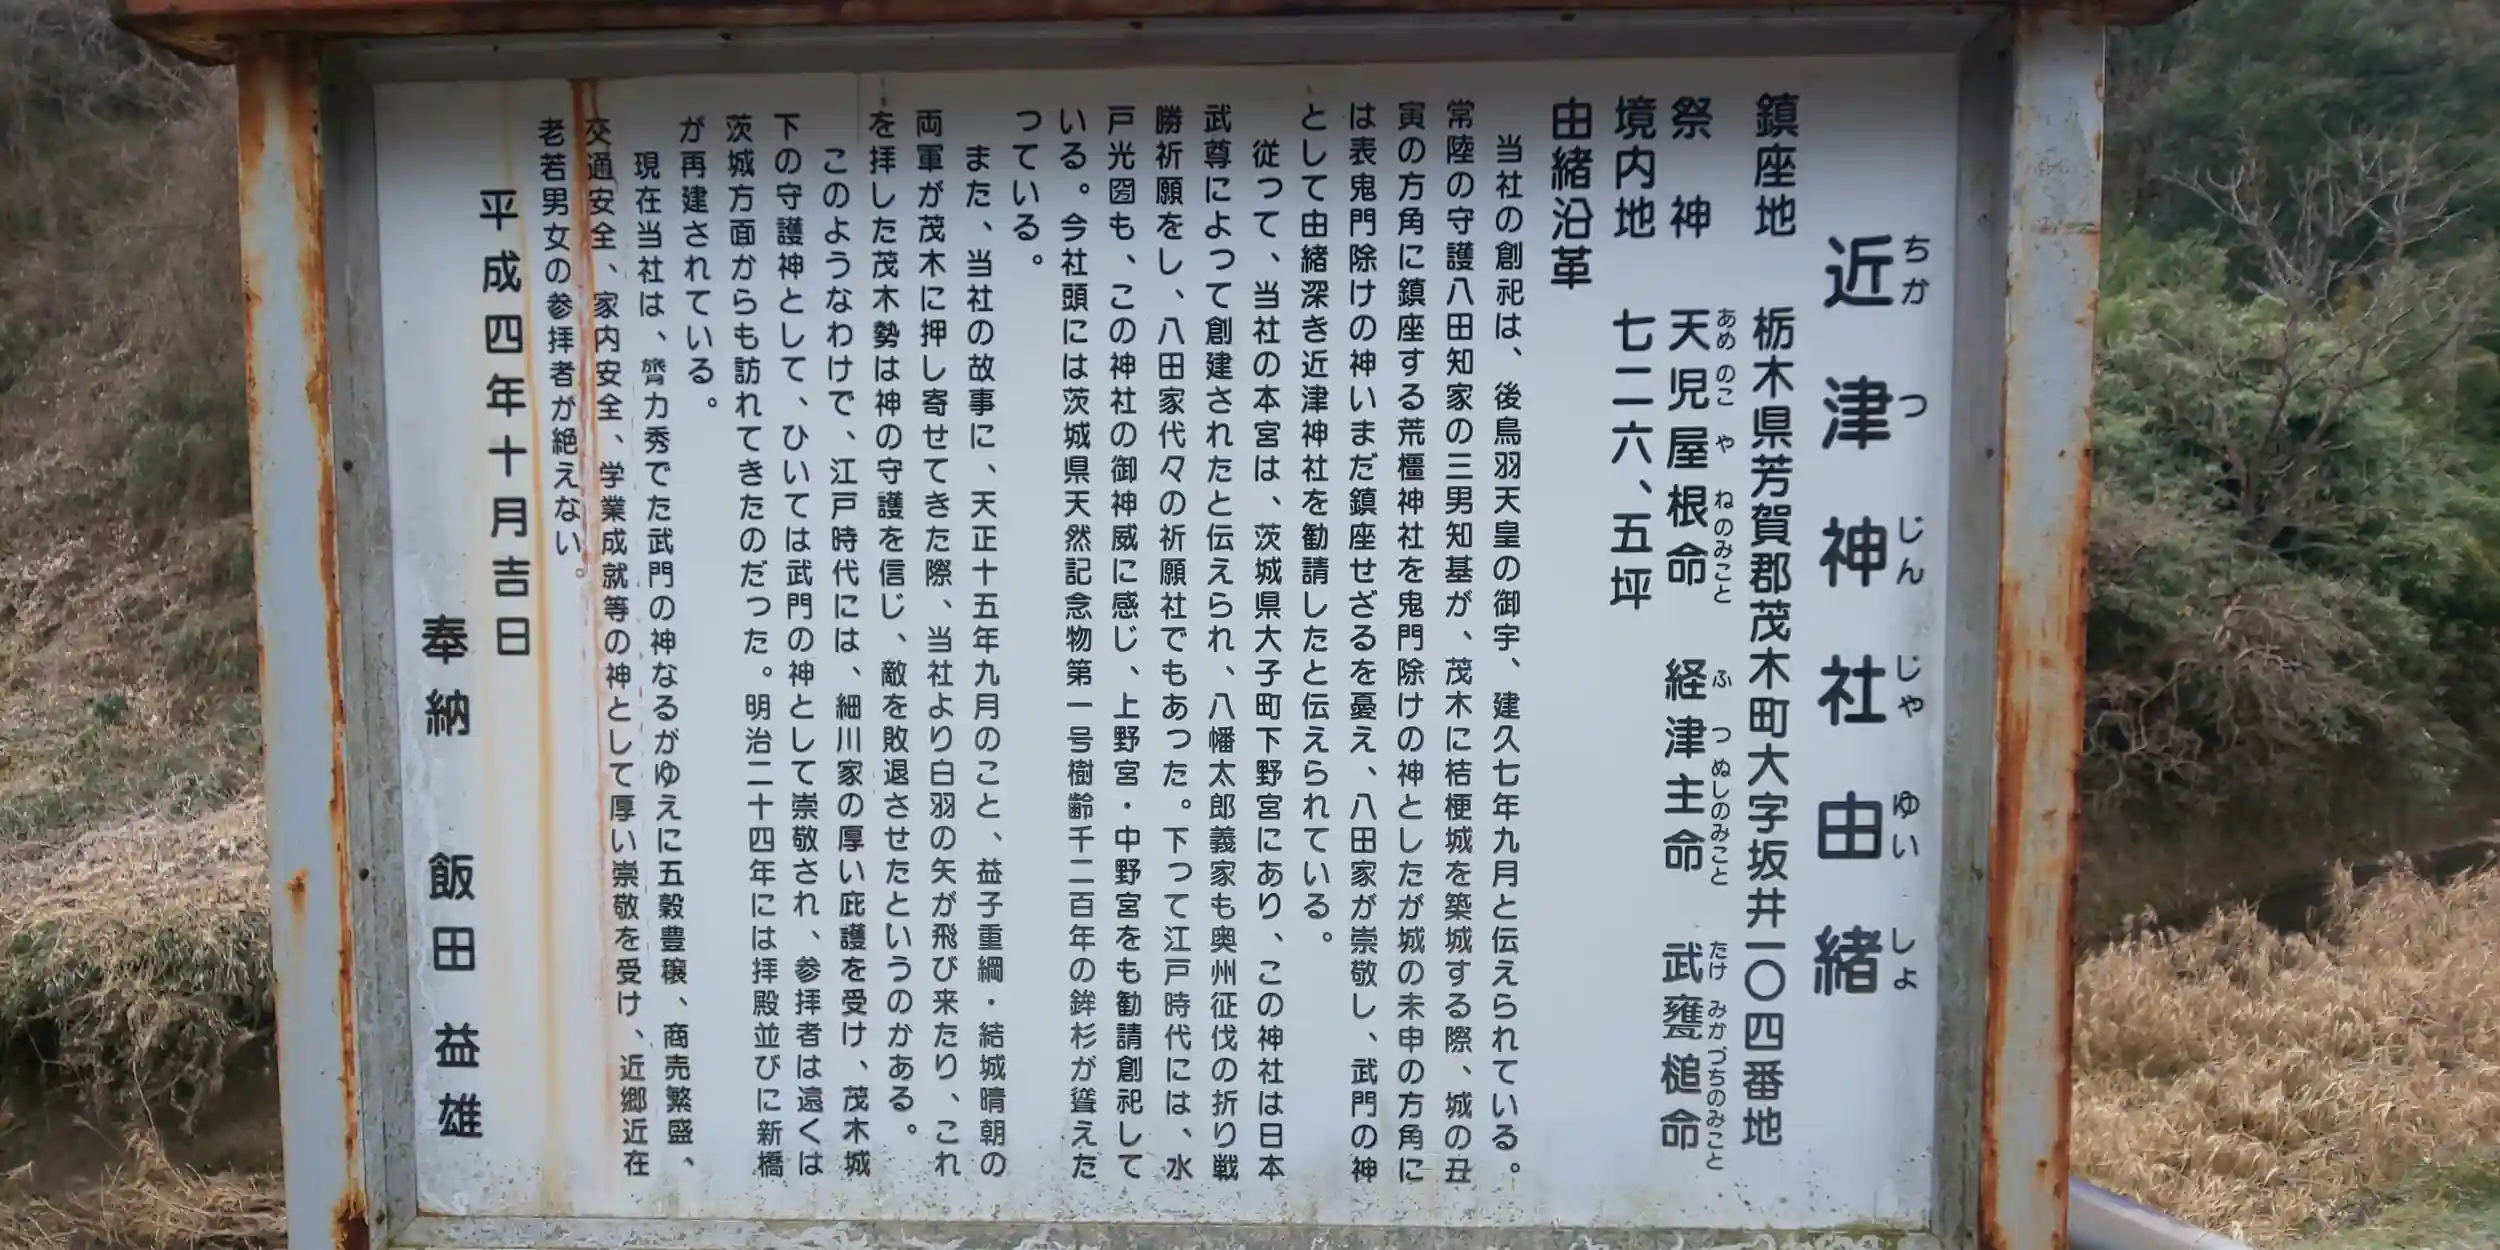 近津神社由緒
ちか つ じん じゃ ゆい しょ
鎮座地 栃木県芳賀郡茂木町大字坂井一〇四番地
祭神 天児屋根命 経津主命 武甕槌命
あめのこやねのみこと ふつぬしのみこと たけみかづちのみこと
境内地 七二六、五坪
由緒沿革
当社の創祀は、後鳥羽天皇の御宇、建久七年九月と伝えられている。
常陸の守護八田知家の三男知基が、茂木に桔梗城を築城する際、城の丑
寅の方角に鎮座する荒橿神社を鬼門除けの神としたが城の未申の方角に
は表鬼門除けの神いまだ鎮座せざるを憂え、八田家が崇敬し、武門の神
として由緒深き近津神社を勧請したと伝えられている。
従って、当社の本宮は、茨城県大子町下野宮にあり、この神社は日本
武尊によって創建されたと伝えられ、八幡太郎義家も奥州征伐の折り戦
勝祈願をし、八田家代々の祈願社でもあった。下って江戸時代には、水
戸光圀も、この神社の御神威に感じ、上野宮・中野宮をも勧請創祀して
いる。今社頭には茨城県天然記念物第一号樹齢千二百年の鉾杉が聳えた
っている。
また、当社の故事に、天正十五年九月のこと、益子重綱・結城晴朝の
両軍が茂木に押し寄せてきた際、当社より白羽の矢が飛び来たり、これ
を拝した茂木勢は神の守護を信じ、敵を敗退させたというのかある。
このようなわけで、江戸時代には、細川家の厚い庇護を受け、茂木城
下の守護神として、ひいては武門の神として崇敬され、参拝者は遠くは
茨城方面からも訪れてきたのだった。明治二十四年には拝殿並びに新橋
が再建されている。
現在当社は、膂力秀でた武門の神なるがゆえに五穀豊穣、商売繁盛、
交通安全、家内安全、学業成就等の神として厚い崇敬を受け、近郷近在
老若男女の参拝者が絶えない。
平成四年十月吉日
奉納 飯田益雄